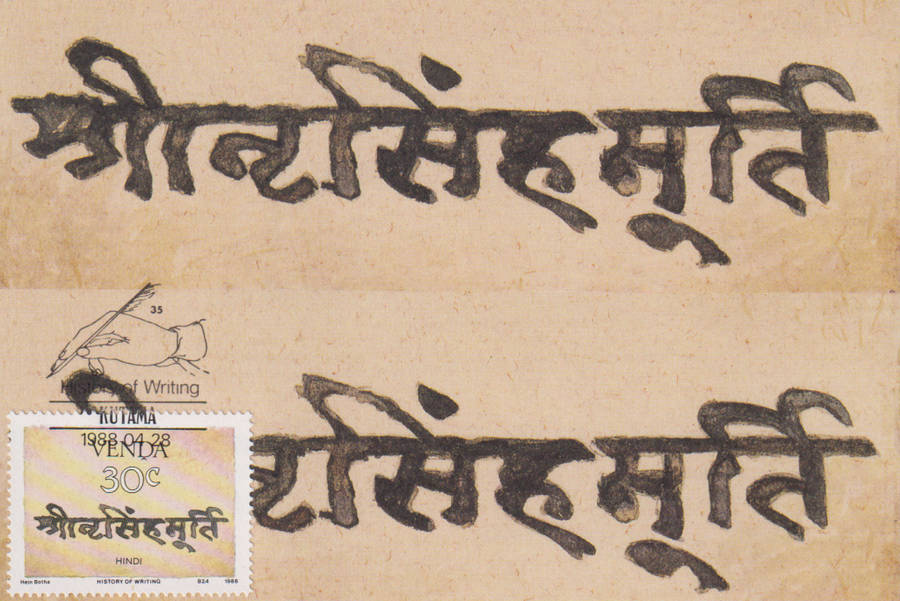 श्रीनृसिंहमूर्ति
35
History of Writing
सिंहमूर्ति
KUTAMA
1988.04.28
VENDA
30c
श्रीनृसिंहमूर्ति
HINDI
Hein Botha HISTORY OF WRITING 1988